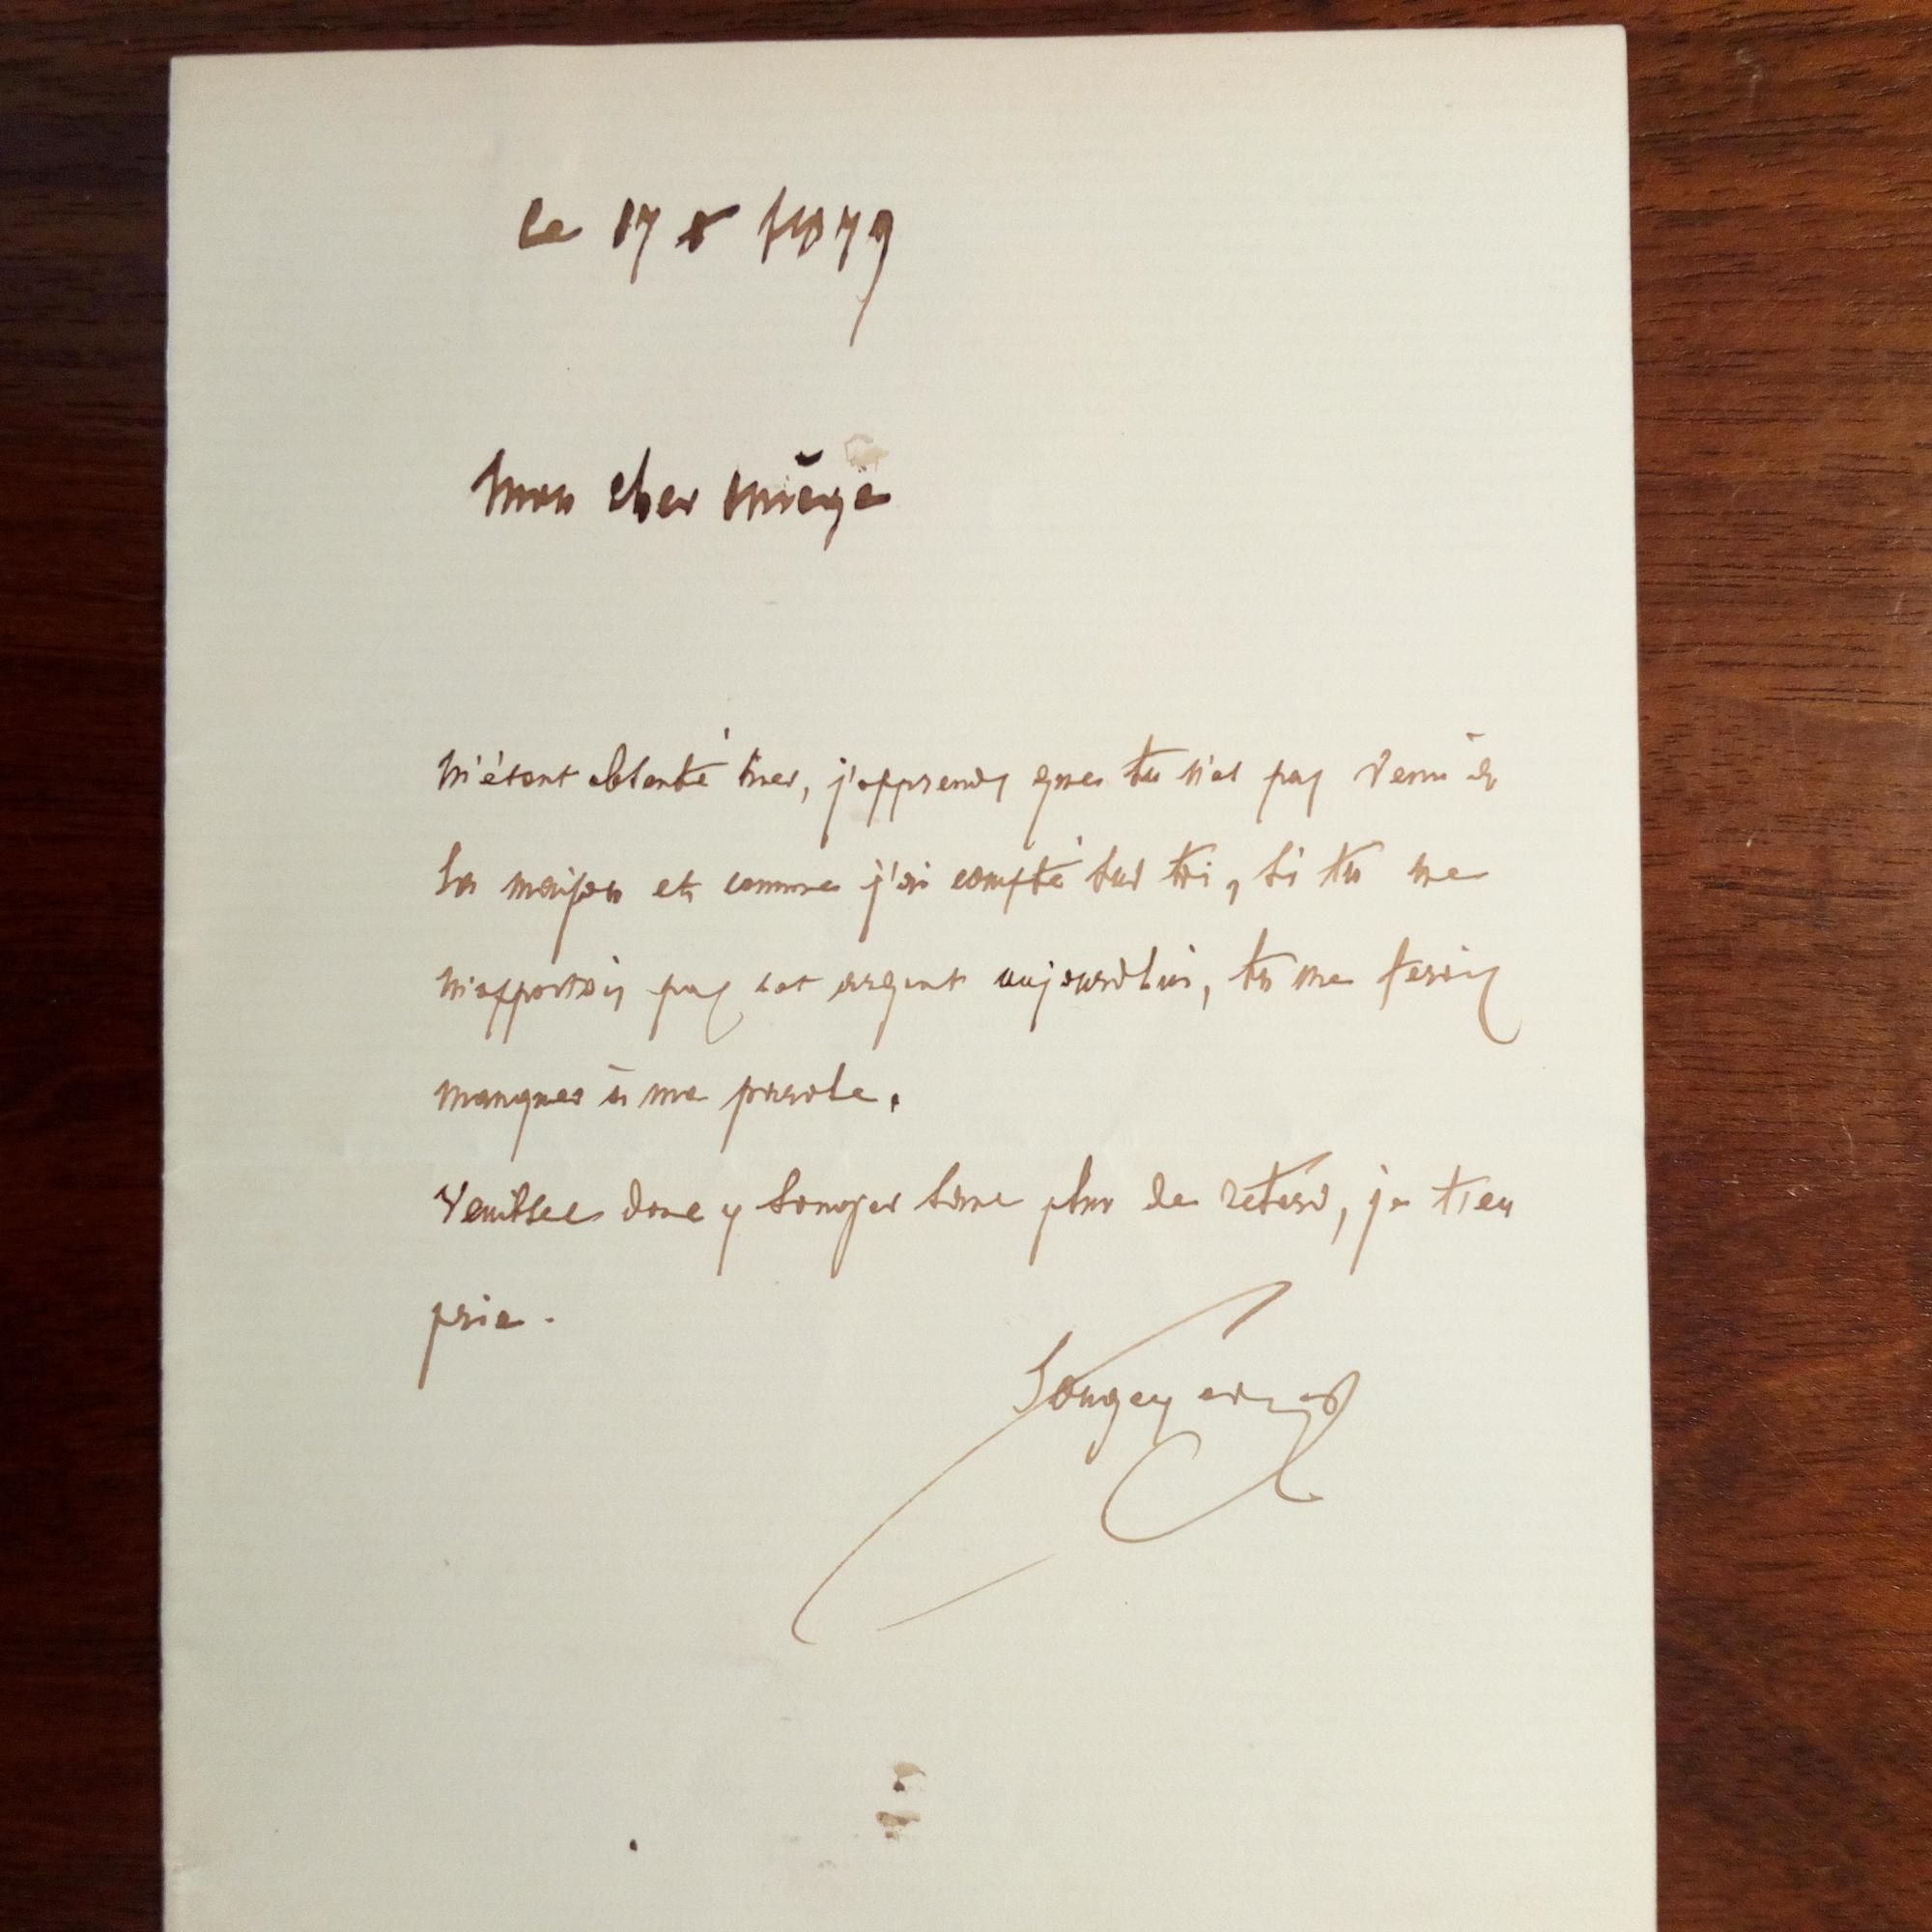 Le 17 X 1879
Mon cher Miège
M'étant absenté hier, j'apprends que tu n'es pas venu à
la maison et comme j'ai compté sur toi, si tu ne
m'apportais pas cet argent aujourd'hui, tu me ferais
manquer à ma parole.
Veuille donc y songer sans plus de retard, je t'en
prie.